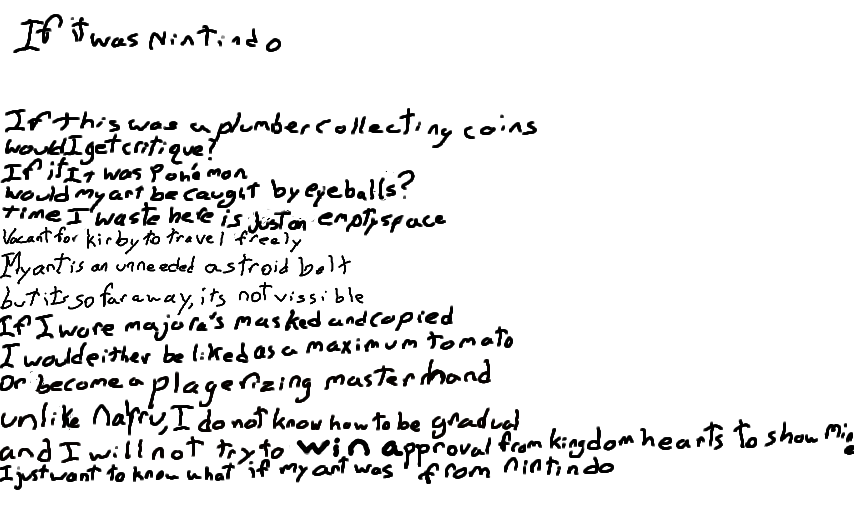 If it was Nintindo
If this was a plumber collecting coins
would I get critique?
If it It was Pokémon
would my art be caught by eyeballs?
time I waste here is Just an emptyspace
Vacant for kirby to travel freely
My art is an unneeded astroid belt
but its so far away, its not vissible
If I wore majora's masked and copied
I would either be liked as a maximum tomato
Or become a plagerizing master hand
unlike Nayru, I do not know how to be gradual
and I will not try to win approval from kingdom hearts to show mine
I just want to know what if my art was from nintindo